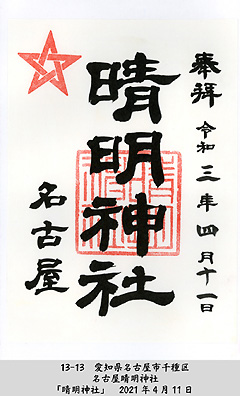 奉拝 令和三年四月十一日
晴明神社
名古屋
13-13 愛知県名古屋市千種区
名古屋晴明神社
「晴明神社」 2021年4月11日